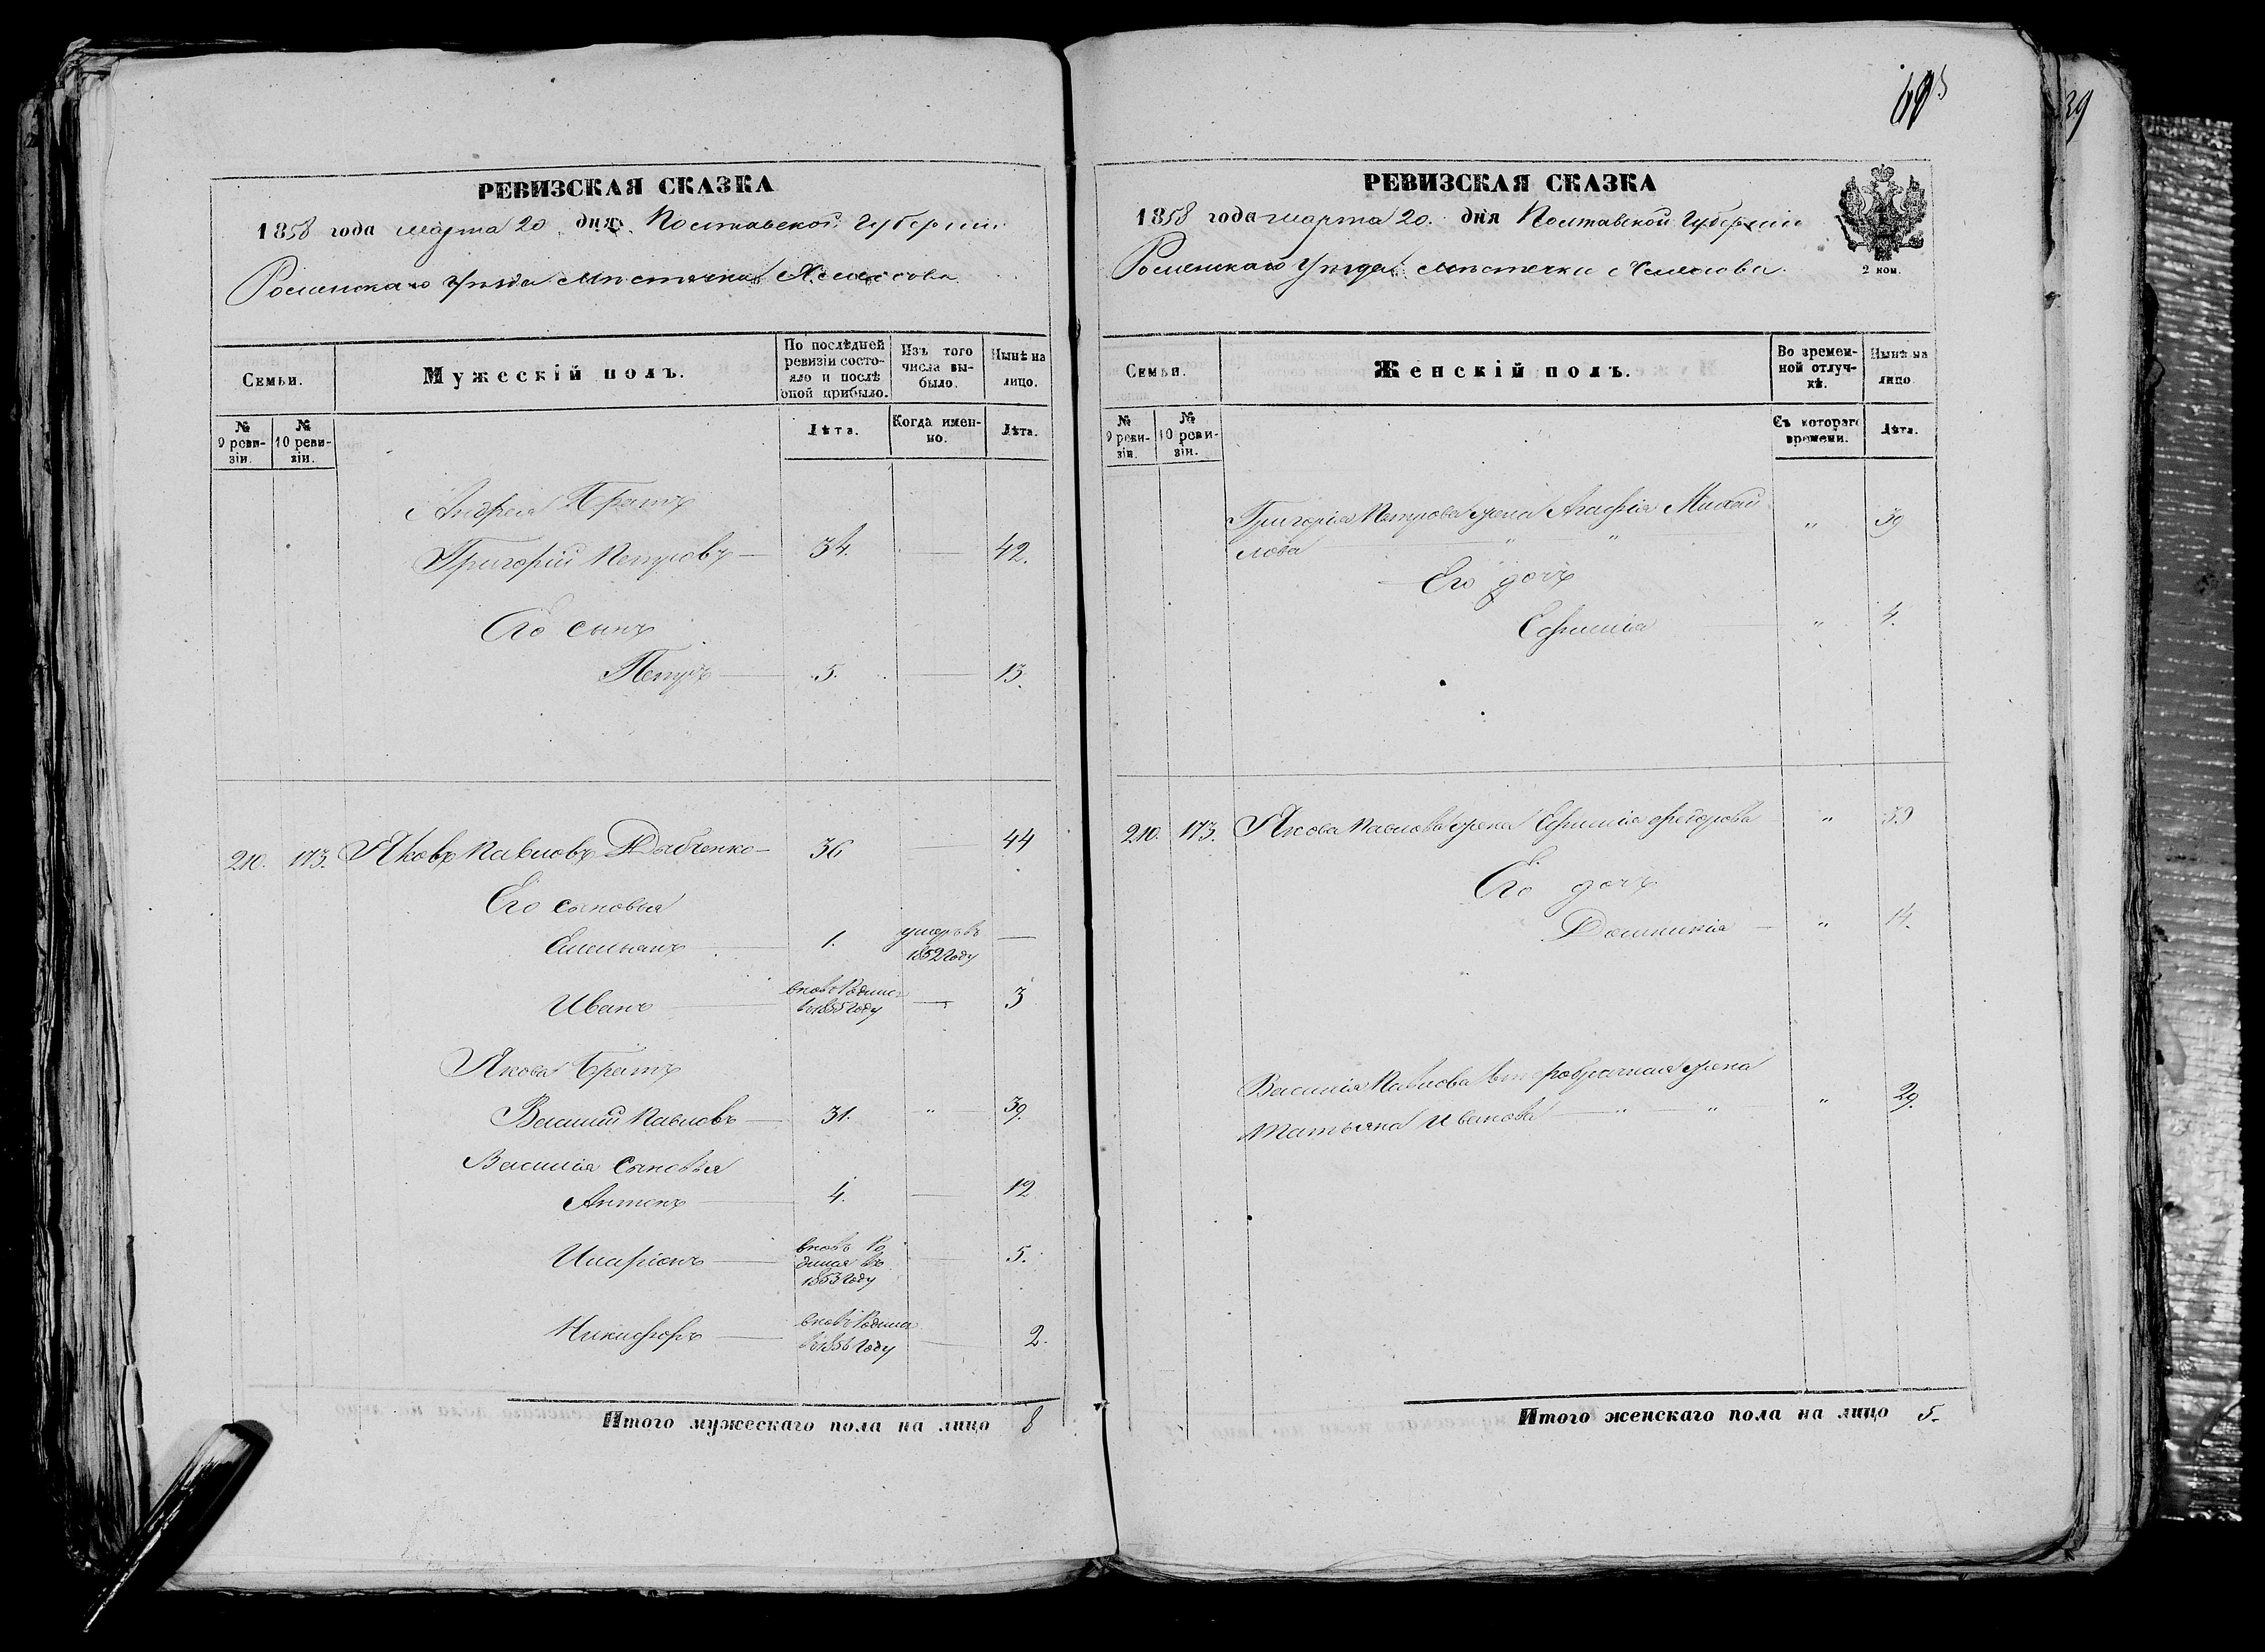 РЕВИЗСКАЯ СКАЗКА
1858 года марта 20 дня Полтавской Губернии
Роменскаго Уезда Местечка Хмелова
Семьи.
Мужескій полъ.
По послѣдней ревизіи состояло и послѣ оной прибыло.
Изъ того числа выбыло.
Нынѣ на лицо.
№ 9 ревизіи.
№ 10 ревизіи.
Лѣта.
Когда именно.
Лѣта.
Андрея Братъ
Григорій Петровъ 34. 42.
Его сынъ
Петръ 5. 13.
210. 173. Яковъ Павловъ 36 44
Его сыновья
Емельянъ 1. умеръ въ 1852 году
Иванъ вновь родился въ 1855 году 3
Якова братъ
Василий Павловъ 31. " 39.
Василія сыновья
Антонъ 4. 12
Иларіонъ вновь родился въ 1853 году 5.
Никифоръ вновь родился въ 1856 году 2.
Итого мужескаго пола на лицо 8
69
39
РЕВИЗСКАЯ СКАЗКА
1858 года марта 20. дня Полтавской Губернии
Роменскаго Уезда местечка Хмелова
2 коп.
Семьи.
Женскій полъ.
Во временной отлучкѣ.
Нынѣ на лицо
№ 9 ревизіи.
№ 10 ревизіи.
Съ котораго времени.
Лѣта.
Григорія Петрова жена Агафія Михай
лова " " " 39
Его дочь
Ефимія " 4.
210. 173. Якова Павлова жена Ефимія Федорова "
Его дочь
Домникія " 14.
Василія Павлова второбрачная жена
Татьяна Иванова " " " 29.
Итого женскаго пола на лицо 5.